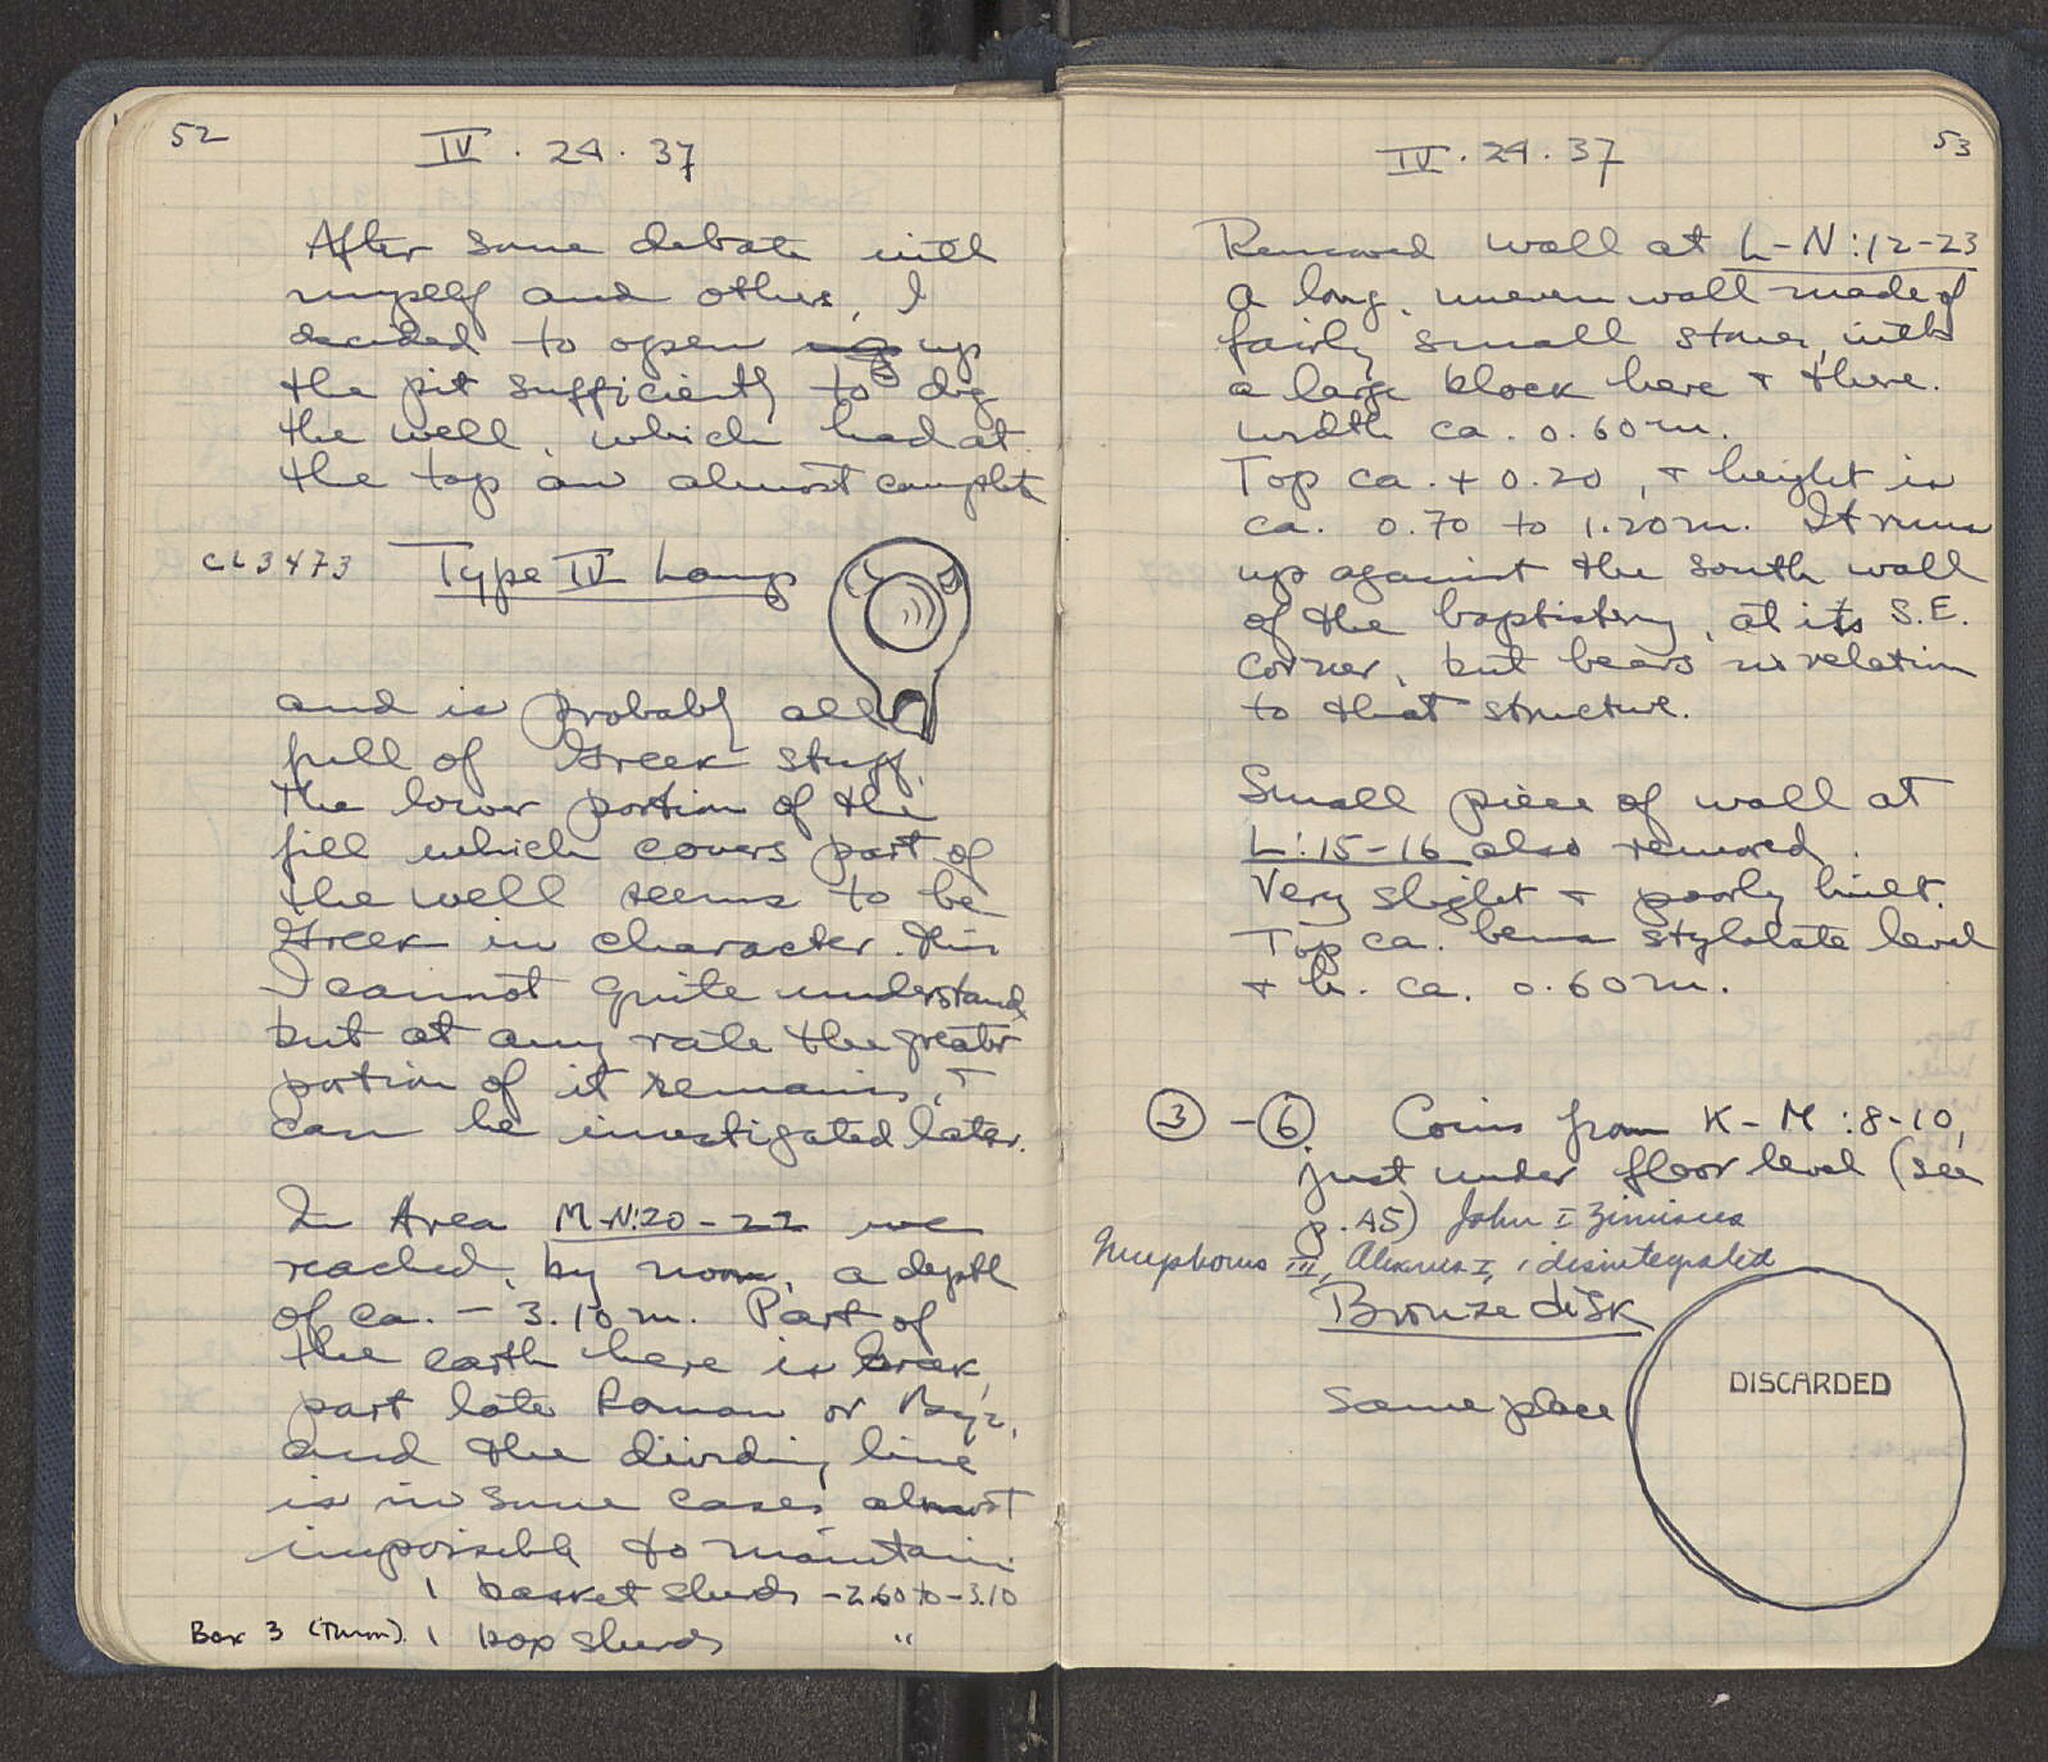 52
IV . 24 . 37
After some debate with
myself and others, I
decided to open up
the pit sufficiently to dig
the well, which had at
the top an almost complete
CL3473 Type IV Lamp
and is probably all
full of Greek stuff.
The lower portion of the
fill which covers part of
the well seems to be
Greek in character. This
I cannot quite understand
but at any rate the greater
portion of it remains, +
can be investigated later.
In Area M-N:20-22 we
reached, by noon, a depth
of ca. - 3.10 m. Part of
the earth here is Greek,
part late Roman or Byz,
and the dividing line
is in some cases almost
impossible to maintain.
1 basket sherds -2.60 to -3.10
Box 3 (Thrown). 1 box sherds "
53
IV . 24 . 37
Removed wall at L-N:12-23
a long, uneven wall made of
fairly small stones, with
a large block here + there.
width ca. 0.60 m.
Top ca. + 0.20, + height is
ca. 0.70 to 1.20 m. It runs
up against the south wall
of the baptistery, at its S.E.
corner, but bears no relation
to that structure.
Small piece of wall at
L:15-16 also removed.
Very slight + poorly built.
Top ca. bema stylobate level
+ h. ca. 0.60 m.
3 - 6 Coins from K-M:8-10,
just under floor level (see
p. 45) John I Zimisces
Nicephorus III, Alexius I, 1 disintegrated
Bronze disk
same place
DISCARDED